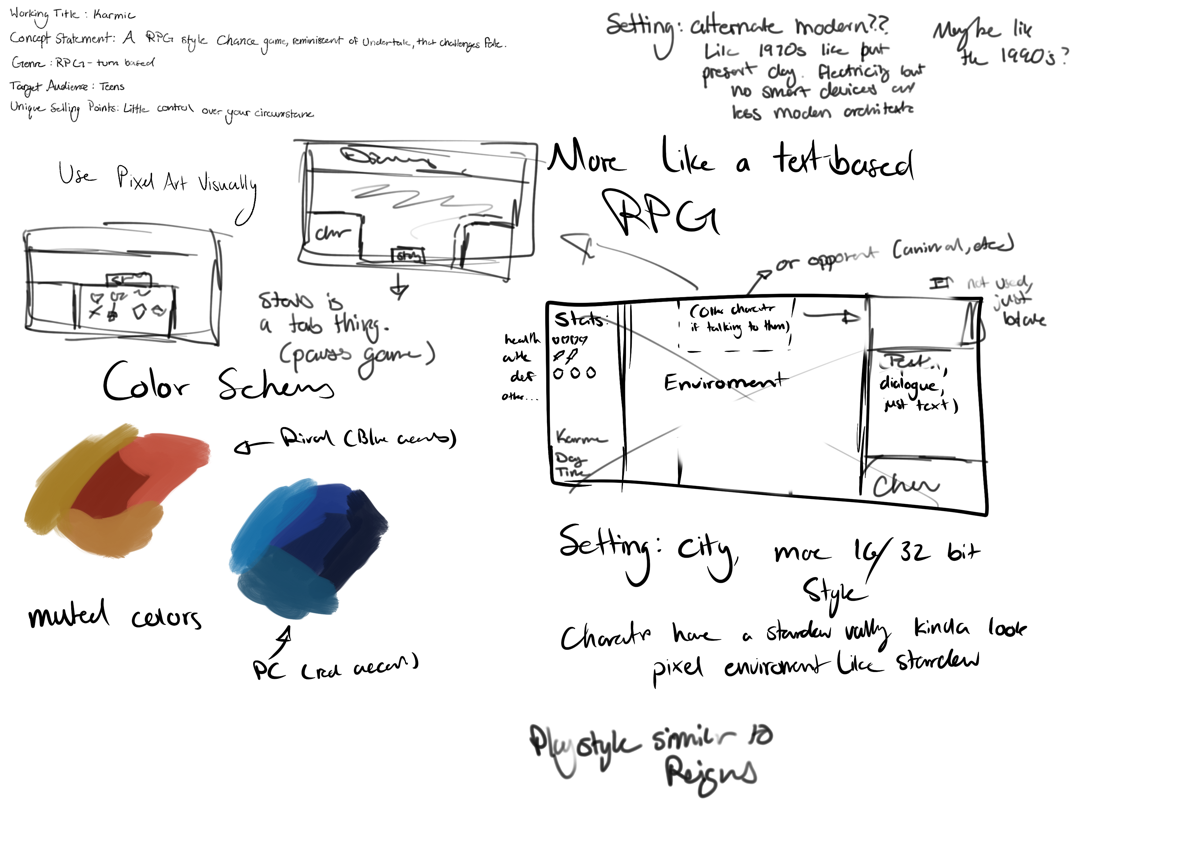 Working Title : Karmic
Concept Statement: A RPG style Chance game, reminiscent of Undertale, that challenges fate.
Genre : RPG - turn based
Target Audience : Teens
Unique Selling Points: Little control over your circumstance
Setting: alternate modern??
Like 1970s like but
present day. Electricity but
no smart devices and
less modern architexture
Maybe like
the 1990s?
Use Pixel Art Visually
chr
stats
Stats is
a tab thing.
(pauss game)
More Like a text-based
RPG
or opponent (animal, etc)
If not used,
just
Stats:
health
def
other...
Karma
Day
Time
(Other character
if talking to them)
Enviroment
Text...,
dialogue,
just text)
Char
Color Schems
Rival (Blue accents)
muted colors
PC (red accent)
Setting: City, more 16/32 bit
Style
Characters have a stardew vally kinda look
pixel enviroment like stardew
Playstyle similar to
Reigns